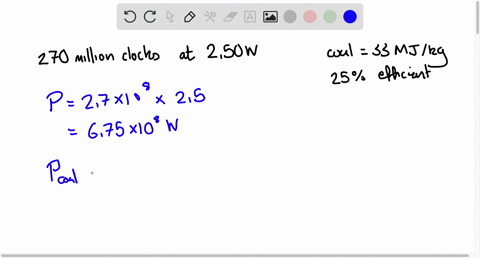 270 million clocks at 2.50W
coal = 33 MJ/kg
25% efficient
P = 2.7 × 10⁸ × 2.5
= 6.75 × 10⁸ W
P_coal